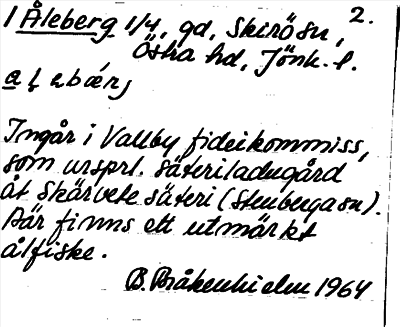 1 Åleberg 1/4, gd, Skirö sn, 2.
Östra hd, Jönk. l.
Ingår i Vallby fideikommiss,
som ursprl. säteriladugård
åt Skärvete säteri (Stenberga sn).
Där finns ett utmärkt
ålfiske.
B. Bråkenhielm 1964